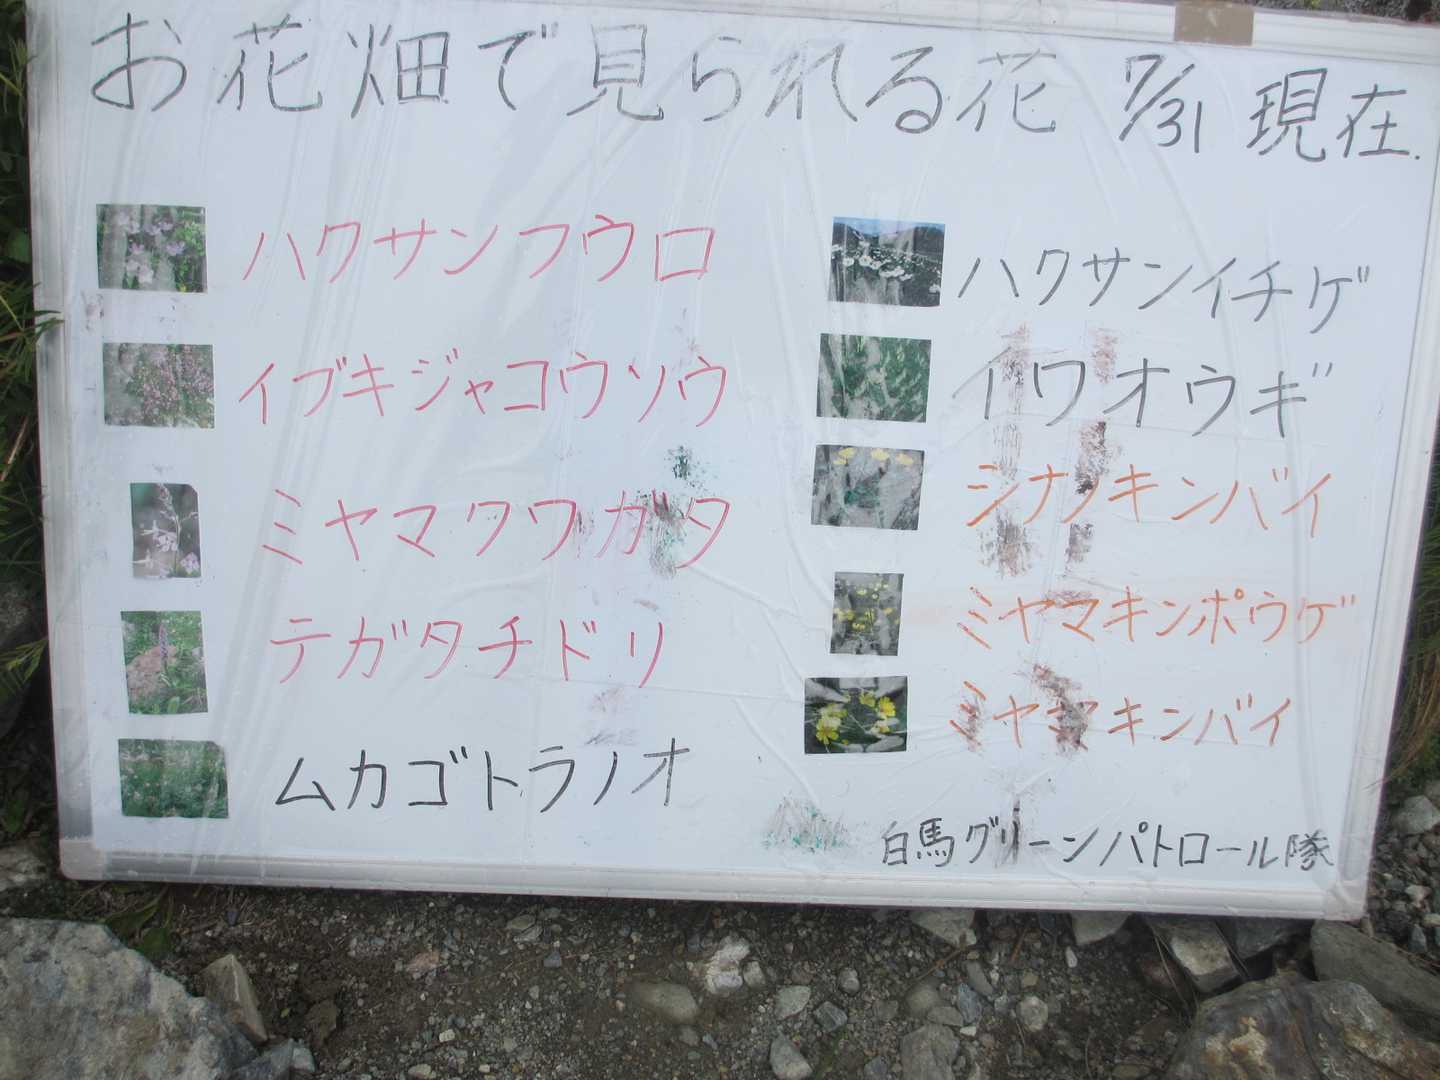 お花畑で見られる花 7/31 現在.
ハクサンフウロ
イブキジャコウソウ
ミヤマクワガタ
テガタチドリ
ムカゴトラノオ
ハクサンイチゲ
イワオウギ
シナノキンバイ
ミヤマキンポウゲ
ミヤマキンバイ
白馬グリーンパトロール隊